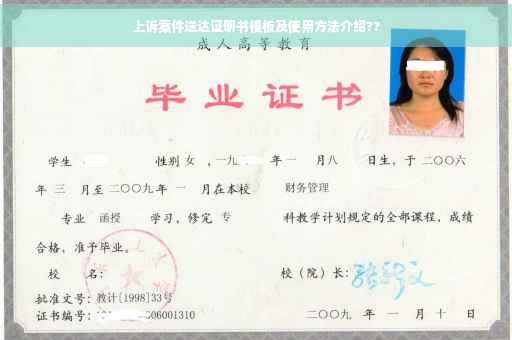 上诉案件送达证明书模板及使用方法介绍??
成人高等教育
毕业证书
学生 性别 女 ，一九 年一 月八 日生，于二〇〇六
年 三 月至二〇〇九年 一 月在本校 财务管理
专业 函授 学习，修完 专 科教学计划规定的全部课程，成绩
合格，准予毕业。
校 名： 校（院）长：
批准文号：教计[1998]33号
证书编号： 06001310 二〇〇九 年 一 月 十 日